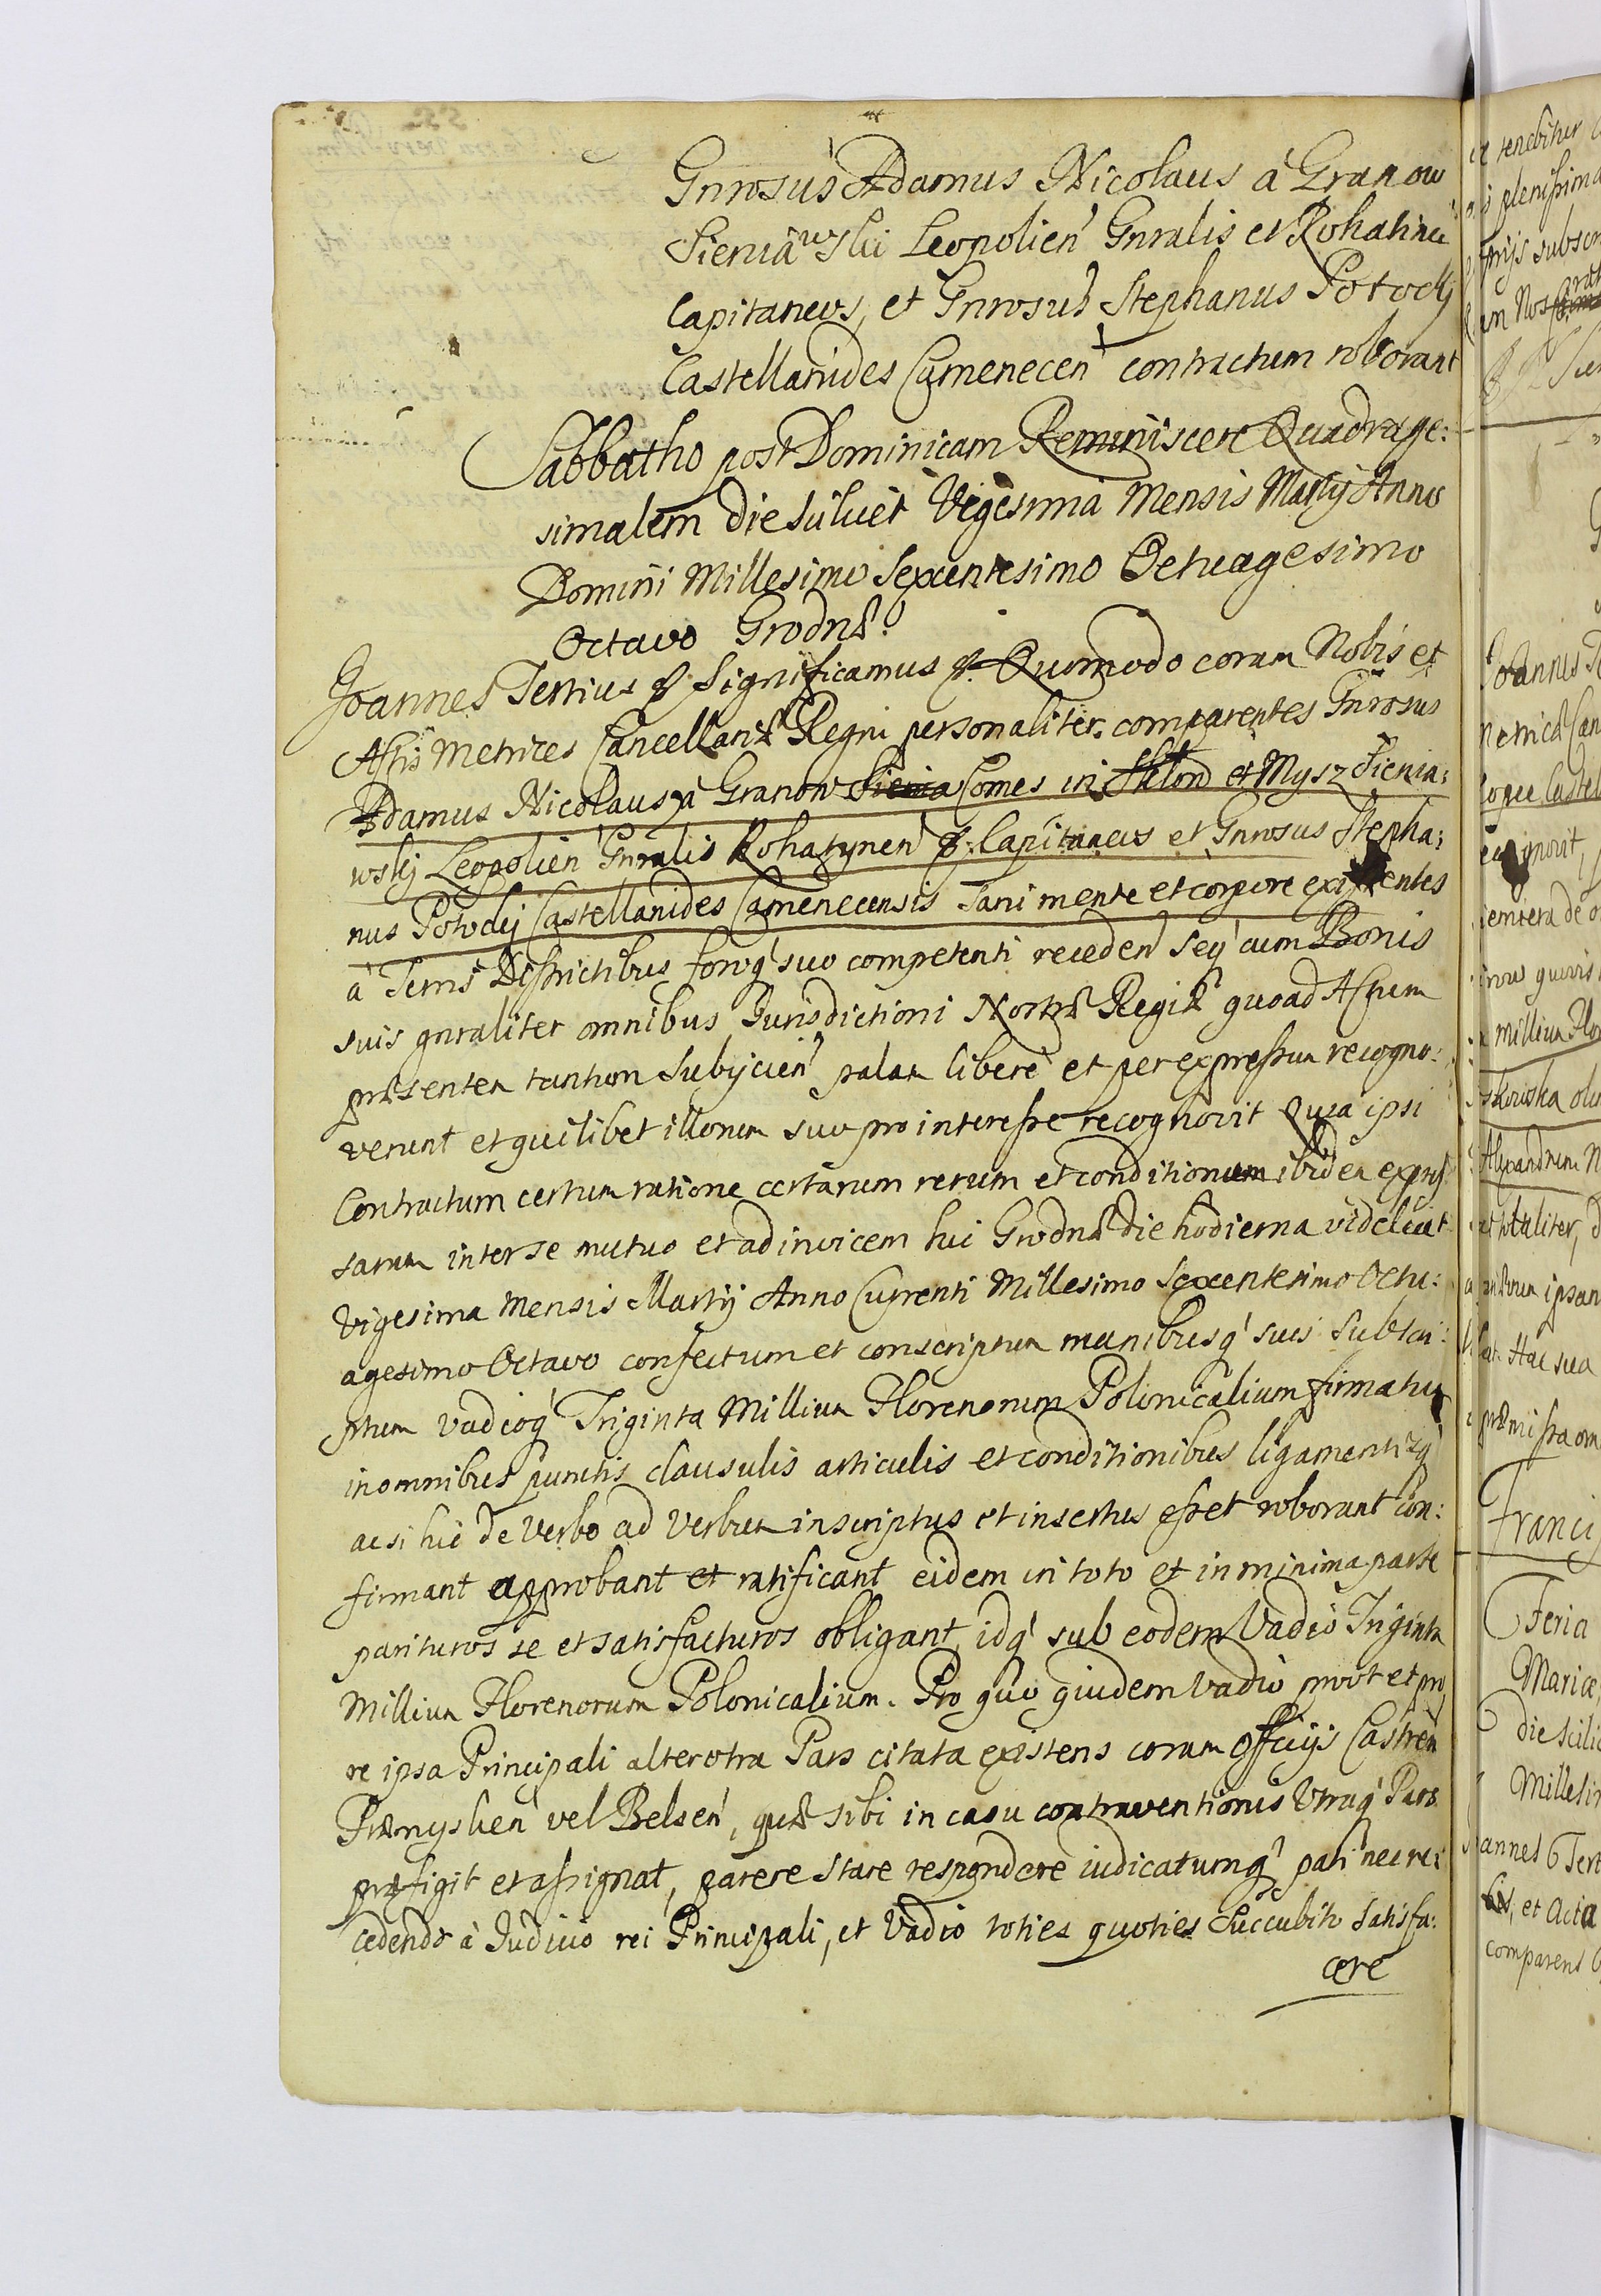 Gnrosus Adamus Nicolaus à Granow
Sieniawski Leopolien Gnralis et Rohatinen
Capitaneus, et Gnrosus Stephanus Potocky
Castellanides Camenecen contractum roborant
Sabbatho post Dominicam Reminiscere Quadrage:
simalem die scilicet Vigesima Mensis Martij Anno
Domini Millesimo Sexcentesimo Octuagesimo
Octavo Grodnæ.
Joannes Tertius & Significamus &. Quomodo coram Nobis et
Actis Metrices Cancellariæ Regni personaliter comparentes Gnrosus
Adamus Nicolaus à Granow Comes in Sklow et Mysz Sienia:
wskij Leopolien Gnralis Rohatynen &. Capitaneus et Gnrosus Stepha:
nus Potockij Castellanides Camenecensis sani mente et corpore existentes
à Terris Districtibus foroq suo competenti receden seq cum Bonis
suis gnraliter omnibus Jurisdictioni Nostræ Regiæ quoad Actum
præsentem tantum subijcien palam libere et per expressum recogno:
verunt et quilibet illorum suo pro interesse recognovit Quia ipsi
Contractum certum ratione certarum rerum et conditionum ibidem expres
sarum inter se mutuo et ad invicem hic Grodnæ die hodierna videlicet
Vigesima Mensis Martij Anno Currenti Millesimo Sexcentesimo Octu:
agesimo Octavo confectum et conscriptum manibusq suis subscri:
ptum vadioq Triginta Millium Florenorum Polonicalium firmatum
in omnibus punctis clausulis articulis et conditionibus ligamentisq
ac si hic de Verbo ad Verbum inscriptus et insertus esset roborant con:
firmant approbant et ratificant eidem in toto et in minima parte
parituros se et satisfacturos obligant, idq sub eodem Vadio Triginta
Millium Florenorum Polonicalium. Pro quo quidem Vadio prout et pro
re ipsa Principali alterutra Pars citata existens coram Officijs Castren
Præmyslien vel Belsen, quæ sibi in casu contraventionis Utraq Pars
præfigit et assignat, parere stare respondere iudicatumq pati nec re:
cedendo à Judicio rei Principali, et Vadio toties quoties succubito satisfa:
cere